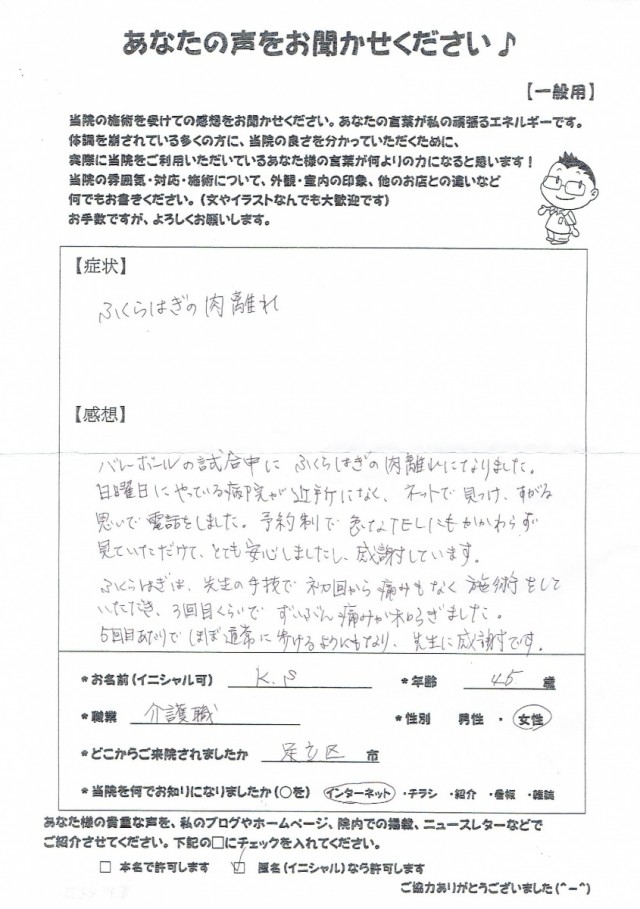 あなたの声をお聞かせください♪
【一般用】
当院の施術を受けての感想をお聞かせください。あなたの言葉が私の頑張るエネルギーです。
体調を崩されている多くの方に、当院の良さを分かっていただくために、
実際に当院をご利用いただいているあなた様の言葉が何よりの力になると思います!
当院の雰囲気・対応・施術について、外観・室内の印象、他のお店との違いなど
何でもお書きください。(文やイラストなんでも大歓迎です)
お手数ですが、よろしくお願いします。
【症状】
ふくらはぎの肉離れ
【感想】
バレーボールの試合中に ふくらはぎの肉離れになりました。
日曜日にやっている病院が近所になく、ネットで見つけ、すがる
思いで電話をしました。予約制で急なTELにもかかわらず
見ていただけて、とても安心しましたし、感謝しています。
ふくらはぎは、先生の手技で初回から痛みもなく施術をして
いただき、3回目くらいでずいぶん痛みが和らぎました。
5回目あたりでほぼ通常に歩けるようにもなり、先生に感謝です。
*お名前(イニシャル可) K.S *年齢 45 歳
*職業 介護職 *性別 男性 ・ 女性
*どこからご来院されましたか 足立区 市
*当院を何でお知りになりましたか(○を) インターネット ・チラシ ・紹介 ・看板 ・雑誌
あなた様の貴重な声を、私のブログやホームページ、院内での掲載、ニュースレターなどで
ご紹介させてください。下記の□にチェックを入れてください。
□ 本名で許可します ☑ 匿名(イニシャル)なら許可します
ご協力ありがとうございました(^-^)